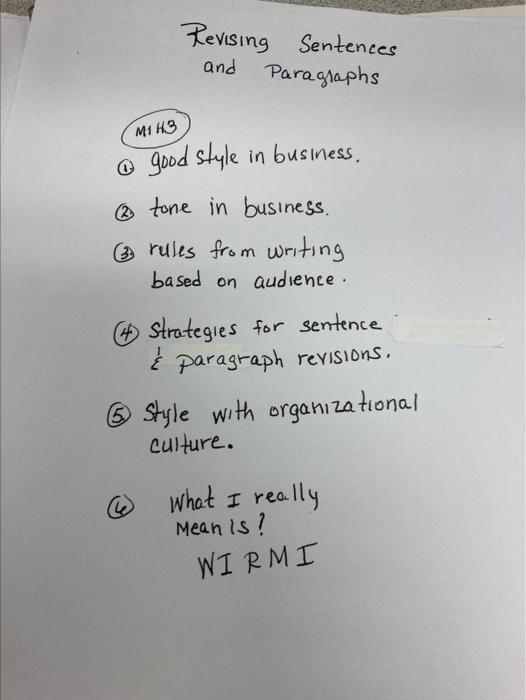 Revising Sentences
and Paragraphs
M1 H3
① good style in business.
② tone in business.
③ rules from writing
based on audience.
④ Strategies for sentence
& paragraph revisions.
⑤ Style with organizational
culture.
⑥ What I really
Mean is?
WIRMI